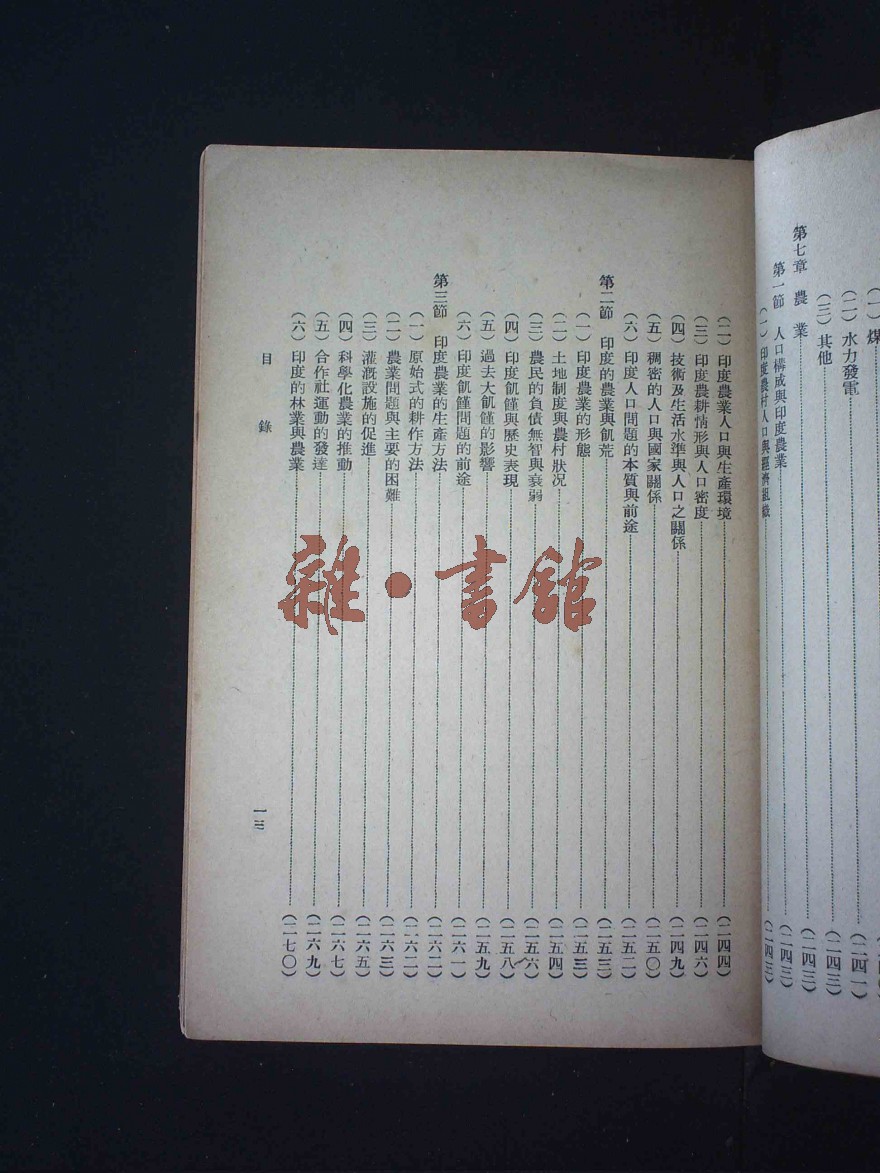 (一)煤
(二)水力發電………(二四一)
(三)其他………(二四三)
第七章 農業………(二四三)
第一節 人口構成與印度農業………(二四三)
(一)印度農村人口與經濟組織………(二四三)
(二)印度農業人口與生產環境………(二四四)
(三)印度農耕情形與人口密度………(二四六)
(四)技術及生活水準與人口之關係………(二四九)
(五)稠密的人口與國家關係………(二五〇)
(六)印度人口問題的本質與前途………(二五二)
第二節 印度的農業與飢荒………(二五三)
(一)印度農業的形態………(二五三)
(二)土地制度與農村狀况………(二五四)
(三)農民的負債無智與衰弱………(二五六)
(四)印度飢饉與歷史表現………(二五八)
(五)過去大飢饉的影響………(二五九)
(六)印度飢饉問題的前途………(二六一)
第三節 印度農業的生產方法………(二六二)
(一)原始式的耕作方法………(二六二)
(二)農業問題與主要的困難………(二六三)
(三)灌漑設施的促進………(二六五)
(四)科學化農業的推動………(二六七)
(五)合作社運動的發達………(二六九)
(六)印度的林業與農業………(二七〇)
目錄
一三
雜·書館